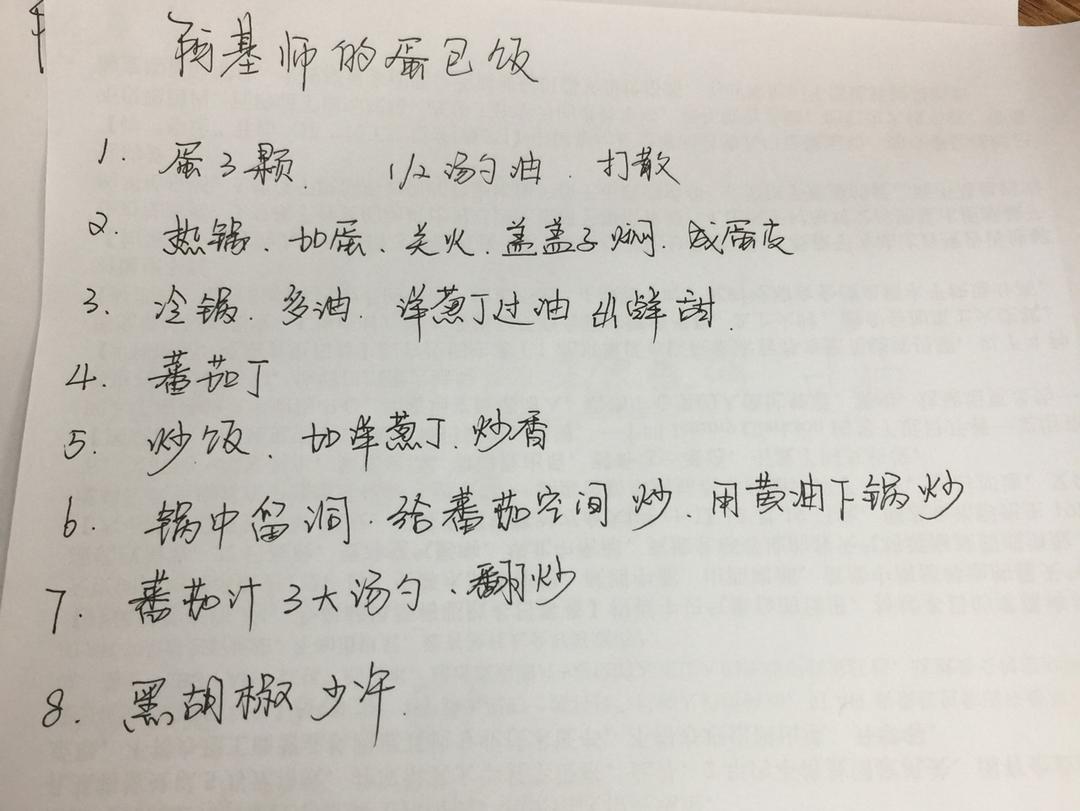 基师的蛋包饭
1. 蛋3颗. 1/2汤勺油. 打散
2. 热锅. 加蛋. 关火. 盖盖子焖. 成蛋皮
3. 冷锅. 多油. 洋葱丁过油 出鲜甜.
4. 蕃茄丁
5. 炒饭. 加洋葱丁炒香
6. 锅中留洞. 给蕃茄空间炒 用黄油下锅炒
7. 蕃茄汁3大汤勺、翻炒
8. 黑胡椒少许.